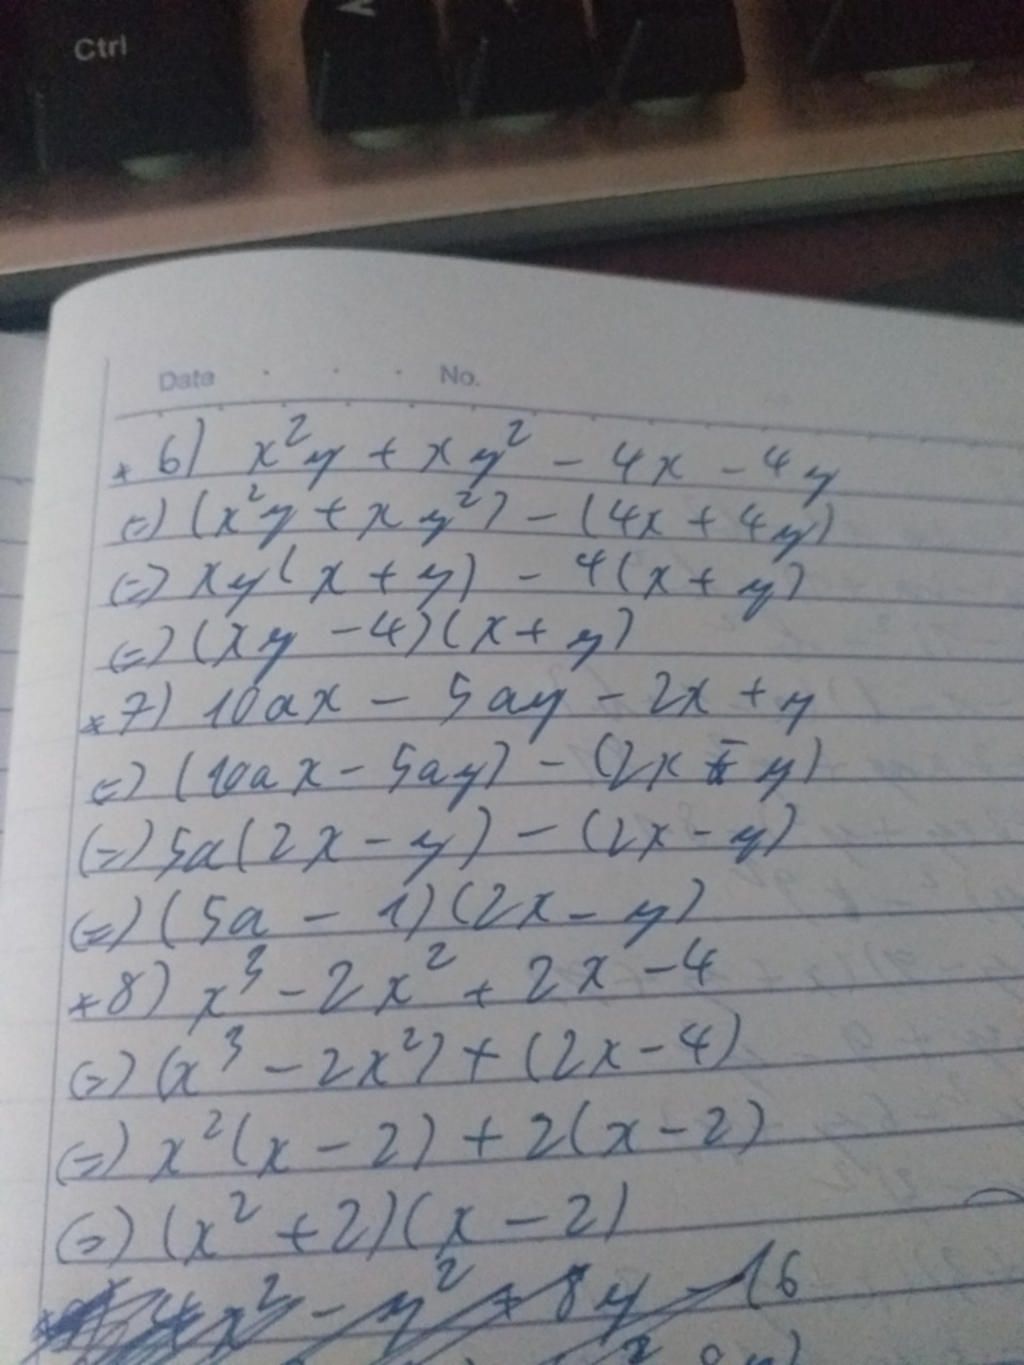 Ctrl
Date No.
* 6) x²y + xy² - 4x - 4y
(=) (x²y + xy²) - (4x + 4y)
(=) xy(x + y) - 4(x + y)
(=) (xy - 4)(x + y)
* 7) 10ax - 5ay - 2x + y
(=) (10ax - 5ay) - (2x - y)
(=) 5a(2x - y) - (2x - y)
(=) (5a - 1)(2x - y)
* 8) x³ - 2x² + 2x - 4
(=) (x³ - 2x²) + (2x - 4)
(=) x²(x - 2) + 2(x - 2)
(=) (x² + 2)(x - 2)
x² - y² + 8y - 16